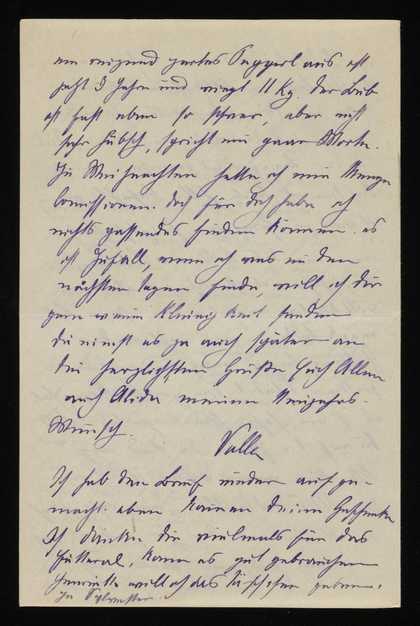 ein reizend zartes Pupperl aus ist
jetzt 3 Jahre und wiegt 11 Kg. der Bub
ist fast eben so schwer, aber nicht
sehr hübsch, spricht nur paar Worte.
Zu Weihnachten hatte ich eine Menge
Comissionen. doch für dich habe ich
nichts passendes finden können. es
ist Zufall, wenn ich was in den
nächsten tagen finde, will ich dir
gern senden
du nimst es ja auch später an
die herzlichsten Grüße Euch Allen
auch Alida meinen Neujahrs-
Wunsch.
Ich hab den Brief wieder aufge-
macht. eben kamen deine Geschenke
Ich danke dir vielmals für das
Futteral, kann es gut gebrauchen
Henriette will ich das geben.
zu Sylvester.